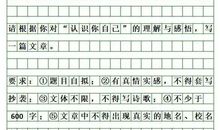 请根据你对“认识你自己”的理解与感悟，写
一篇文章。
要求：①题目自拟；②有真情实感，不得套写
抄袭；③文体不限，不得写诗歌；④不少于
600 字；⑤文章中不得出现真实的地名、校名